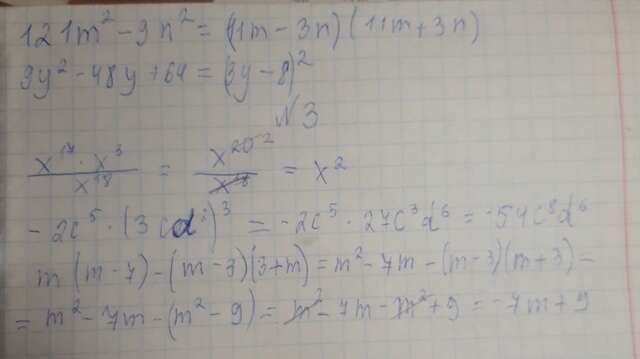 121m² - 9n² = (11m - 3n)(11m + 3n)
9y² - 48y + 64 = (3y - 8)²
№3
x¹⁷ · x³ / x¹⁸ = x²⁰ ² / x¹⁸ = x²
- 2c⁵ · (3cd²)³ = -2c⁵ · 27c³d⁶ = -54c⁸d⁶
m(m - 7) - (m - 3)(3 + m) = m² - 7m - (m - 3)(m + 3) =
= m² - 7m - (m² - 9) = m² - 7m - m² + 9 = -7m + 9